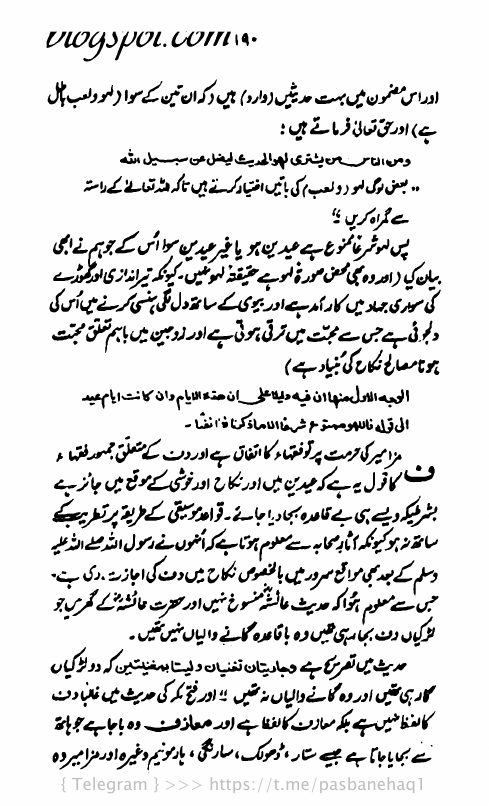 blogspot.com ۱۹۰
اور اس مضمون میں بہت حدیثیں (وارد) ہیں (کہ ان تین کے سوا (لہو ولعب باطل
ہے) اور حق تعالیٰ فرماتے ہیں :
ومن الناس من یشتری لهو الحدیث لیضل عن سبیل الله
" بعض لوگ لہو (ولعب) کی باتیں اختیار کرتے ہیں تاکہ اللہ تعالیٰ کے راستہ
سے گمراہ کریں "
پس لہو شرعاً ممنوع ہے عیدین ہو یا غیر عیدین سوا اُس کے جو ہم نے ابھی
بیان کیا (اور وہ بھی محض صورۃً لہو ہے حقیقۃً لہو نہیں۔ کیونکہ تیر اندازی اور گھوڑے
کی سواری جہاد میں کارآمد ہے اور بیوی کے ساتھ دل لگی ہنسی کرنے میں اُس کی
دلجوئی ہے جس سے محبت میں ترقی ہوتی ہے اور زوجین میں باہم تعلق محبت
ہونا مصالح نکاح کی بنیاد ہے)
الوجه الاول منها ان فیه دلیلا علی ان هذه الایام وان کانت ایام عید
الی قوله فاللهو ممنوع شرعا الا ما ذکرنا آنفا ۔
ف مزامیر کی حرمت پر تو فقہاء کا اتفاق ہے اور دف کے متعلق جمہور فقہاء
کا قول یہ ہے کہ عیدین میں اور نکاح اور خوشی کے موقع میں جائز ہے
بشرطیکہ ویسے ہی بے قاعدہ بجا دیا جائے۔ قواعد موسیقی کے طریقہ پر تطریب کے
ساتھ نہ ہو کیونکہ آثار صحابہ سے معلوم ہوتا ہے کہ اُنہوں نے رسول اللہ صلے اللہ علیہ
وسلم کے بعد بھی مواقع سرور میں بالخصوص نکاح میں دف کی اجازت دی ہے۔
جس سے معلوم ہوا کہ حدیث عائشہؓ منسوخ نہیں اور حضرت عائشہؓ کے گھر میں جو
لڑکیاں دف بجا رہی تھیں وہ باقاعدہ گانے والیاں نہیں تھیں۔
حدیث میں تصریح ہے وجاریتان تغنیان ولیستا بمغنیتین کہ دو لڑکیاں
گا رہی تھیں اور وہ گانے والیاں نہ تھیں " اور فتح مکہ کی حدیث میں غالباً دف
کا لفظ نہیں ہے بلکہ معازف کا لفظ ہے اور معازف وہ باجا ہے جو ہاتھ
سے بجایا جاتا ہے جیسے ستار، ڈھولک، سارنگی، ہارمونیم وغیرہ اور مزامیر وہ
{ Telegram } >>> https://t.me/pasbanehaq1